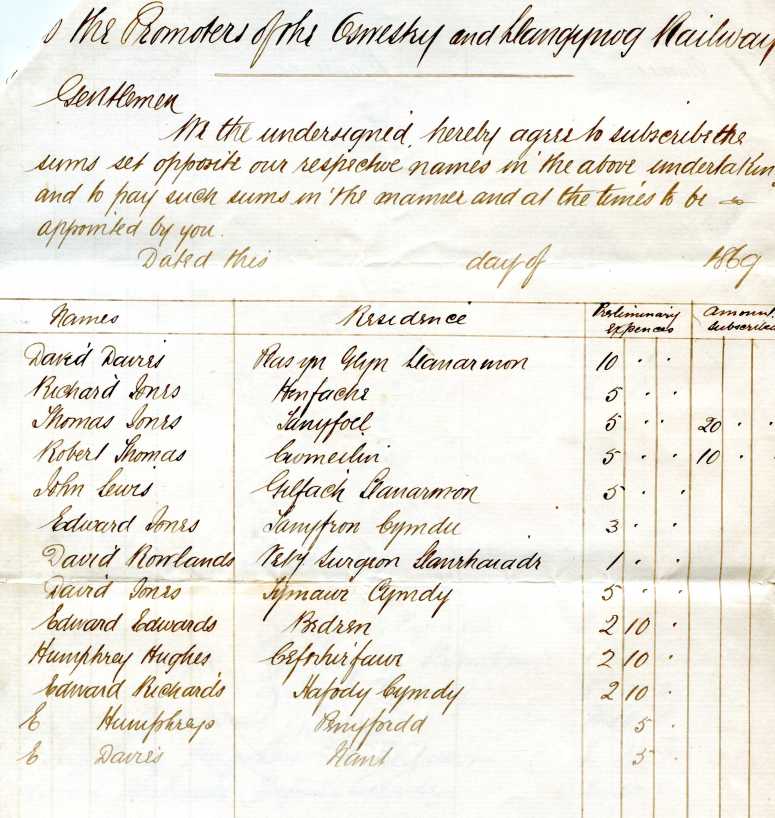 o the Promoters of the Oswestry and Llangynog Railway
Gentlemen
We the undersigned, hereby agree to subscribe the
sums set opposite our respective names in the above undertakin
and to pay such sums in the manner and at the times to be
appointed by you.
Dated this day of 1869
Names Residence Preliminary expences Amount subscribed
David Davies Glyn Llanarmon 10 " "
Richard Jones Henfache 5 " "
Thomas Jones Tanyfoel 5 " " 20 " "
Robert Thomas Cwmeilin 5 " " 10 " "
John Lewis Gilfach Llanarmon 5 " "
Edward Jones Tanyfron Cymdu 3 " "
David Rowlands Vety Surgeon Llanrhaiadr 1 " "
David Jones Tymawr Cymdy 5 " "
Edward Edwards Bedren 2 10 "
Humphrey Hughes 2 10 "
Edward Richards Hafody Cymdy 2 10 "
E Humphreys Penyfordd 5 "
E Davies Nant 5 "